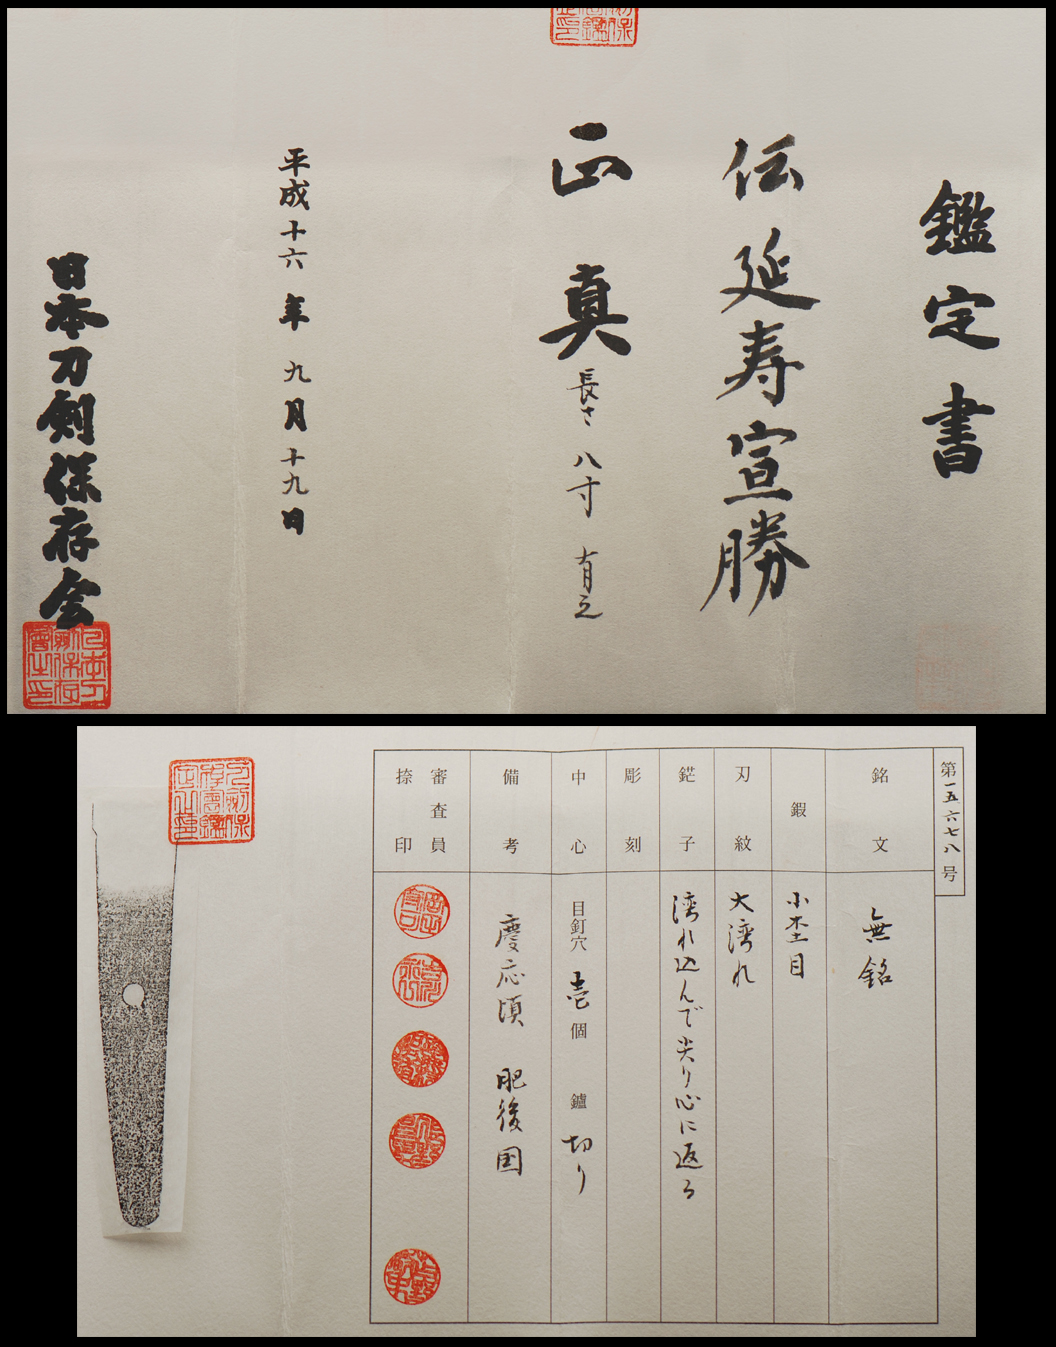 鑑定書
伝 延寿宣勝
正真 長さ 八寸 有之
平成十六年 九月十九日
日本刀剣保存会
第一五六七八号
銘文
無銘
鍜
小杢目
刃紋
大湾れ
鋩子
湾れ込んで尖り心に返る
彫刻
中心
目釘穴 壱個 鑢 切り
備考
慶応頃 肥後国
審査員
捺印